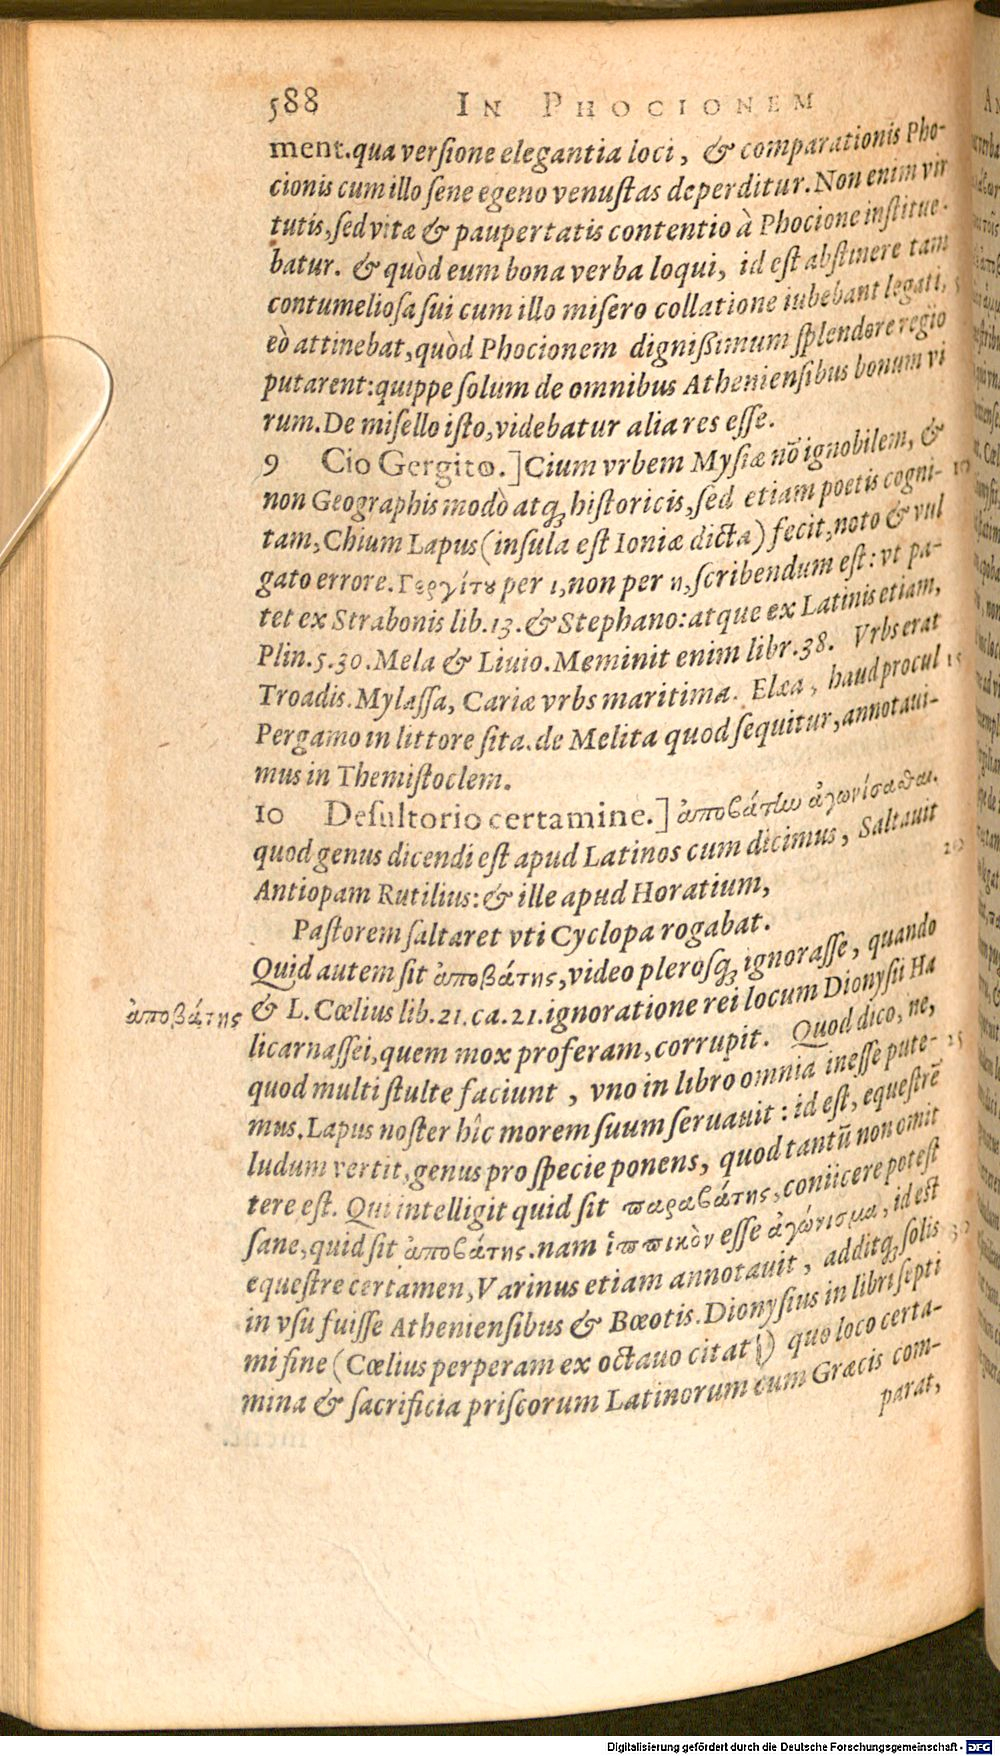 588 IN PHOCIONEM
ment. qua versione elegantia loci, & comparationis Pho-
cionis cum illo sene egeno venustas deperditur. Non enim vir
tutis, sed vitæ & paupertatis contentio à Phocione institue-
batur. & quòd eum bona verba loqui, id est abstinere tam
contumeliosa sui cum illo misero collatione iubebant legati, 5
eò attinebat, quòd Phocionem dignißimum splendore regio
putarent: quippe solum de omnibus Atheniensibus bonum vi
rum. De misello isto, videbatur alia res esse.
9 Cio Gergito.] Cium vrbem Mysiæ nõ ignobilem, &
non Geographis modò atq; historicis, sed etiam poetis cogni- 10
tam, Chium Lapus (insula est Ioniæ dicta) fecit, noto & vul
gato errore. Γεργίτου per ι, non per η, scribendum est: vt pa-
tet ex Strabonis lib. 13. & Stephano: atque ex Latinis etiam,
Plin. 5. 30. Mela & Liuio. Meminit enim libr. 38. Vrbs erat
Troadis. Mylassa, Cariæ vrbs maritima. Elæa, haud procul 15
Pergamo in littore sita. de Melita quod sequitur, annotaui-
mus in Themistoclem.
10 Desultorio certamine.] ἀποβάτην ἀγωνίσαθαι.
quod genus dicendi est apud Latinos cum dicimus, Saltauit
Antiopam Rutilius: & ille apud Horatium, 20
Pastorem saltaret vti Cyclopa rogabat.
Quid autem sit ἀποβάτης, video plerosq; ignorasse, quando
ἀποβάτης & L. Cœlius lib. 21. ca. 21. ignoratione rei locum Dionysii Ha
licarnassei, quem mox proferam, corrupit. Quod dico, ne,
quod multi stulte faciunt, vno in libro omnia inesse pute- 25
mus. Lapus noster hîc morem suum seruauit: id est, equestrẽ
ludum vertit, genus pro specie ponens, quod tantũ non omit
tere est. Qui intelligit quid sit παραβάτης, coniicere potest
sane, quid sit ἀποβάτης. nam ἱππικὸν esse ἀγώνισμα, id est
equestre certamen, Varinus etiam annotauit, additq; solis 30
in vsu fuisse Atheniensibus & Bœotis. Dionysius in libri septi
mi fine (Cœlius perperam ex octauo citat) quo loco certa-
mina & sacrificia priscorum Latinorum cum Græcis com-
parat,
Digitalisierung gefördert durch die Deutsche Forschungsgemeinschaft - DFG